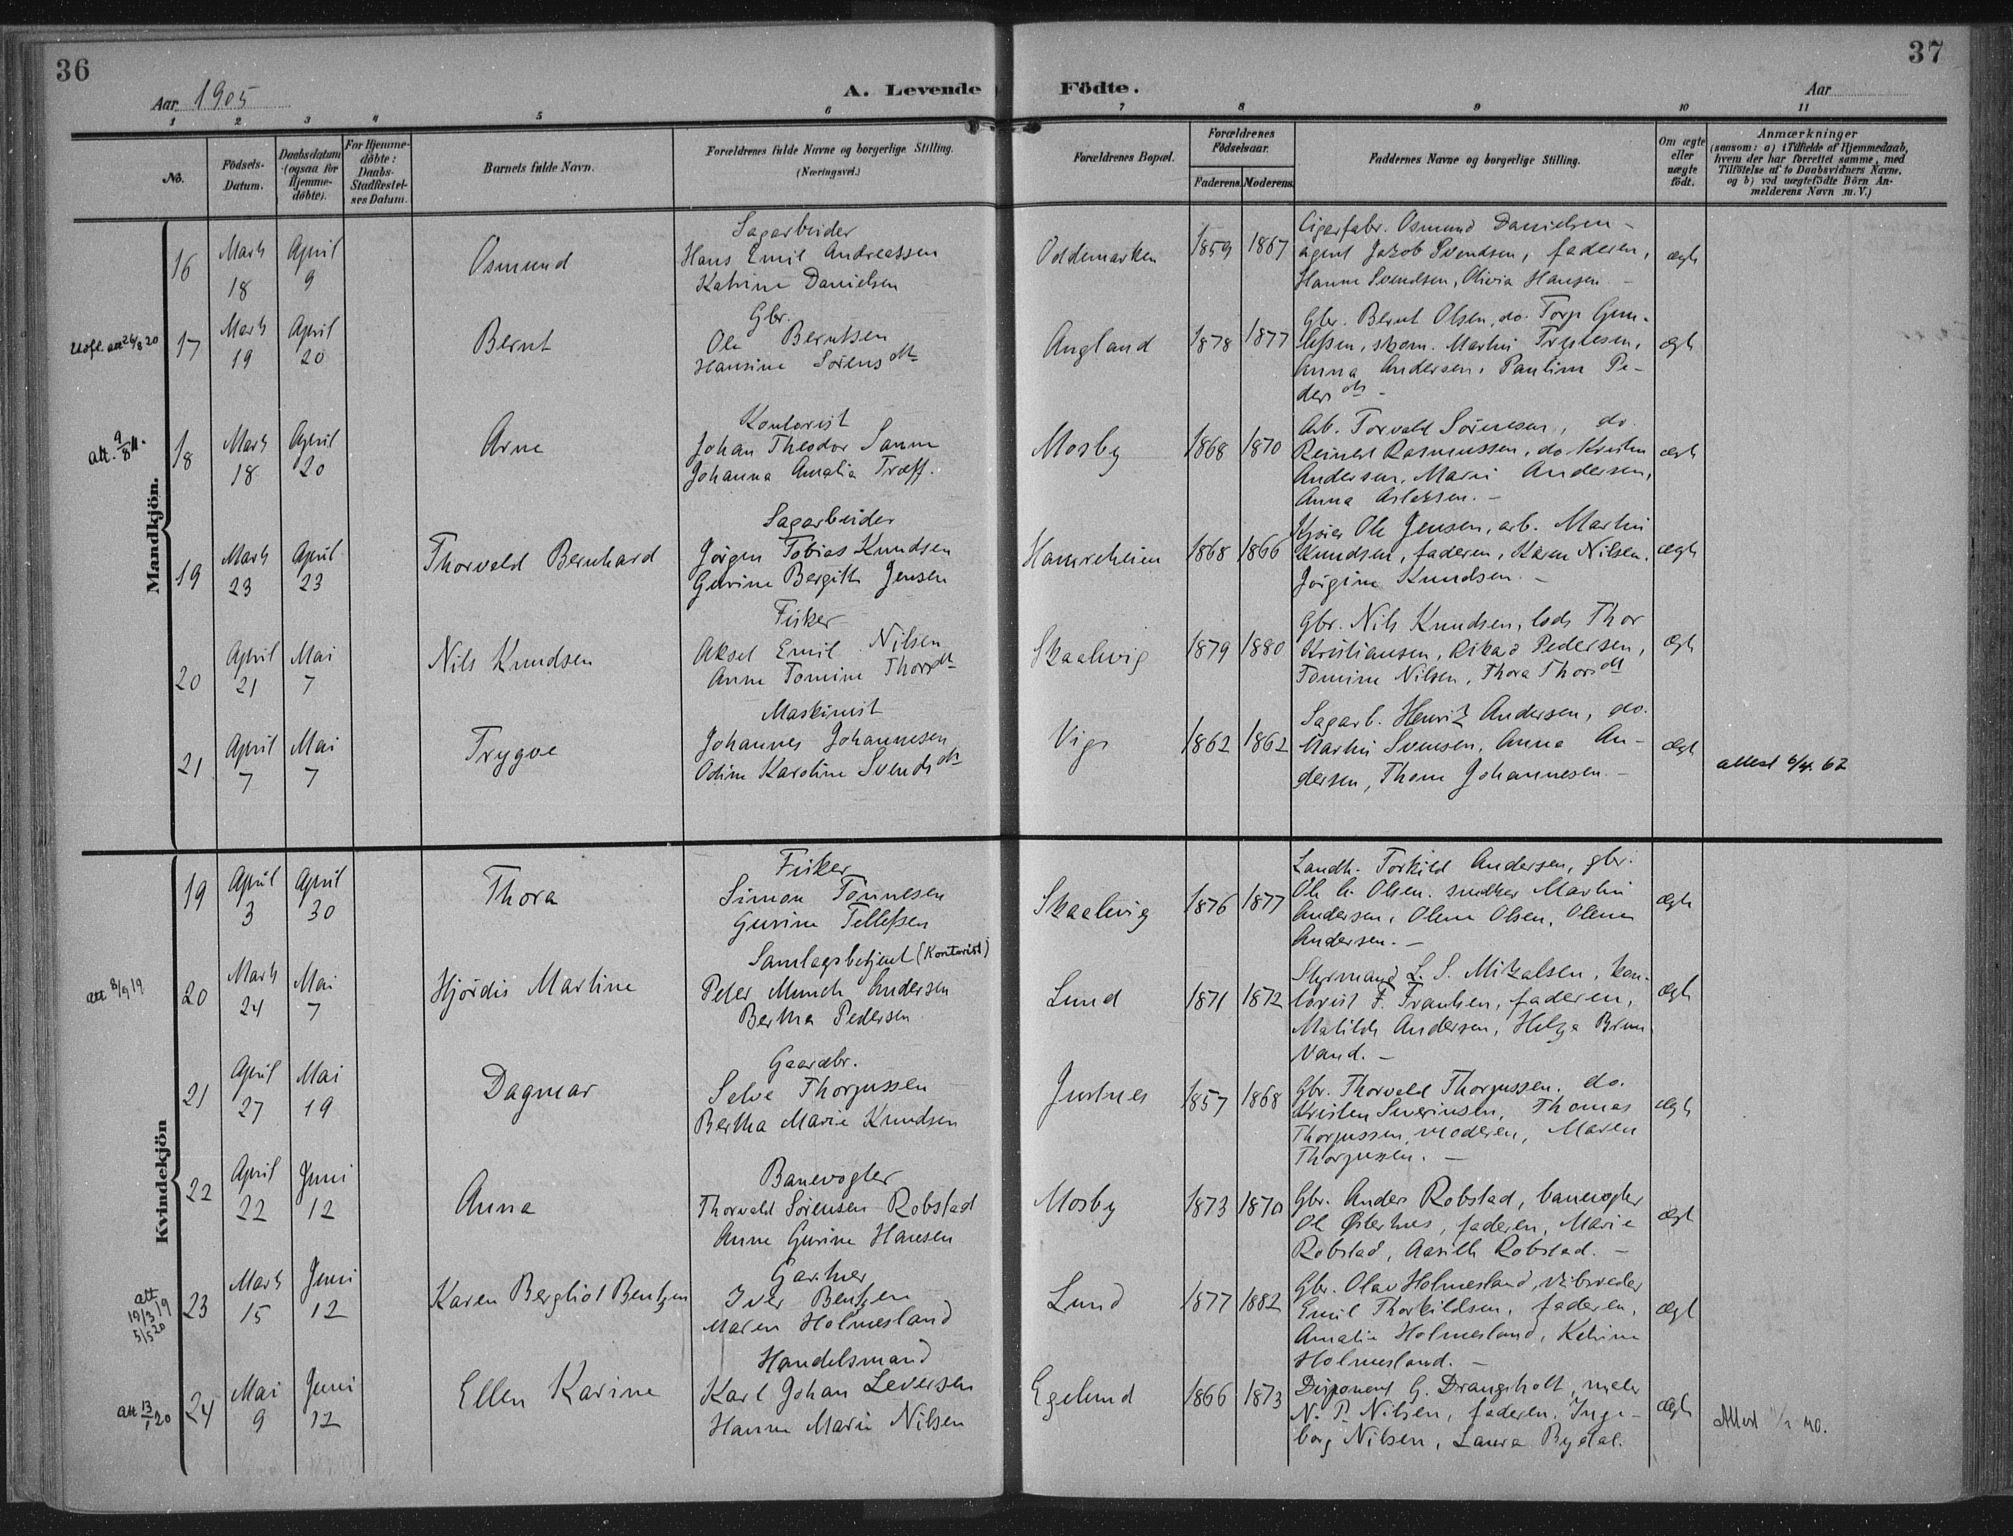 36
37
Aar 1905
A. Levende Födte.
Aar
1 2 3 4 5 6 7 8 9 10 11
No.
Födsels-Datum.
Daabsdatum (ogsaa för Hjemme-döbte).
For Hjemme-döbte: Daabs-Stadfæstel-ses Datum.
Barnets fulde Navn.
Forældrenes fulde Navne og borgerlige Stilling. (Næringsvei.)
Forældrenes Bopæl.
Forældrenes Födselsaar.
Faderens. Moderens.
Faddernes Navne og borgerlige Stilling.
Om ægte eller uægte födt.
Anmærkninger
(saasom: a) i Tilfælde af Hjemmedaab,
hvem der har forrettet samme, med
Tilföielse af to Daabsvidners Navne,
og b) ved uægtefödte Börn An-
melderens Navn m. V.)
Mandkjön.
16 Marts 18 April 9 Osmund
Sagarbeider
Hans Emil Andreassen
Katrine Danielsen
Oddemarken 1859 1867
Cigarfabr. Osmund Danielsen –
agent Jakob Svendsen, faderen,
Hanne Svendsen, Olivia Hansen. –
ægte
17 Marts 19 April 20 Bernt
Gbr.
Ole Berntsen
Hansine Sörensdtr
Augland 1878 1877
Gbr. Bernt Olsen, do. Torp Gun-
Anna Andersen, Pauline Pe-
ders dtr –
ægte
att. 9/8 11.
18 Marts 18 April 20 Arne
Kontorist
Johan Theodor Sanne
Johanna Amalia Træff.
Mosby 1868 1870
Arb. Torvald Sörensen, do.
Reinert Rasmussen, do. Kristen
Andersen, Marie Andersen,
Anna Aslaksen. –
ægte
19 Marts 23 April 23 Thorvald Bernhard
Sagarbeider
Jörgen Tobias Knudsen
Gurine Bergitte Jensen
Hamreheien 1868 1866
Ole Jensen, arb. Martin
Knudsen, faderen, Karen Nilsen,
Jörgine Knudsen. –
ægte
20 April 21 Mai 7 Nils Knudsen
Fisker
Aksel Emil Nilsen
Anne Tomine Thorsdtr
Skaalevig 1879 1880
Gbr. Nils Knudsen, lods Thor
Kristiansen, Rikard Pedersen,
Tomine Nilsen, Thora Thorsdtr
ægte
21 April 7 Mai 7 Trygve
Maskinist
Johannes Johannesen
Odine Karoline Svendsdtr
Vige 1862 1862
Sagarb. Henrik Andersen, do.
Martin Svensen, Anna An-
dersen, Thone Johannesen. –
ægte
attest 6/4. 62
Kvindekjön
19 April 3 April 30 Thora
Fisker
Simon Tönnesen
Gurine Tellefsen
Skaalevig 1876 1877
Landh. Torkild Andersen, gbr.
Ole G. Olsen, snedker Martin
Andersen, Olene Olsen, Olene
Andersen. –
ægte
att 8/9 19
20 Marts 24 Mai 7 Hjördis Martine
Samlagsbetjent (Kontorist)
Peter Munch Andersen
Bertha Pedersen
Lund 1871 1872
Styrmand L. S. Mikalsen, kon-
torist F. Frantzen, faderen,
Matilde Andersen, Helga Brun
Vand. –
ægte
21 April 27 Mai 19 Dagmar
Gaardbr.
Selve Thorjussen
Bertha Marie Knudsen
Justnes 1857 1868
Gbr. Thorvald Thorjussen, do.
Kristen Severinsen, Thomas
Thorjussen, moderen, Maren
Thorjussen. –
ægte
22 April 22 Juni 12 Anna
Banevogter
Thorvald Sörensen Robstad
Anne Gurine Hansen
Mosby 1873 1870
Gbr. Anders Robstad, banevogter
Ole Østerhus, faderen, Marie
Robstad, Aasille Robstad. –
ægte
att 19/3 19
5/5 20
23 Marts 15 Juni 12 Karen Bergliot Bentzen
Gartner
Iver Bentzen
Maren Holmesland
Lund 1877 1882
Gbr. Olav Holmesland,
Emil Thorkildsen, faderen,
Amalie Holmesland, Katrine
Holmesland. –
ægte
att 13/1 20
24 Mai 9 Juni 12 Ellen Karine
Handelsmand
Karl Johan Leversen
Hanne Marie Nilsen
Egelund 1866 1873
Disponent G. Drangsholt, maler
N. P. Nilsen, faderen, Inge-
borg Nilsen, Laura Bydal.
ægte